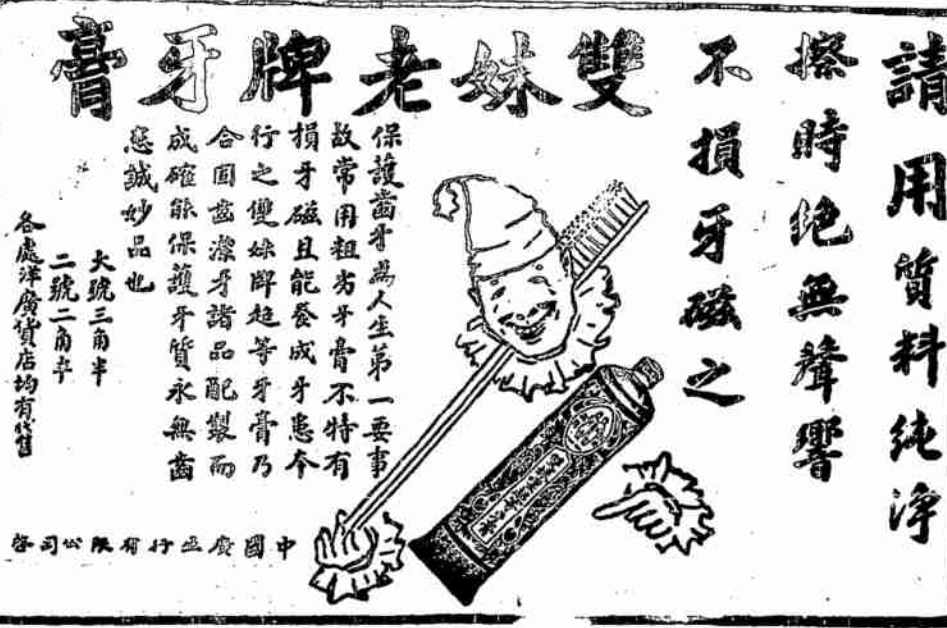 請用質料純淨
擦時絕無聲響
不損牙磁之
雙妹老牌牙膏
保護齒牙為人生第一要事
故常用粗劣牙膏不特有
損牙磁且能養成牙患今
行之雙妹牌超等牙膏乃
合固齒潔牙諸品配製而
成確能保護牙質永無齒
患誠妙品也
大號三角半
二號二角半
各處洋廣貨店均有代售
中國廣生行有限公司啓